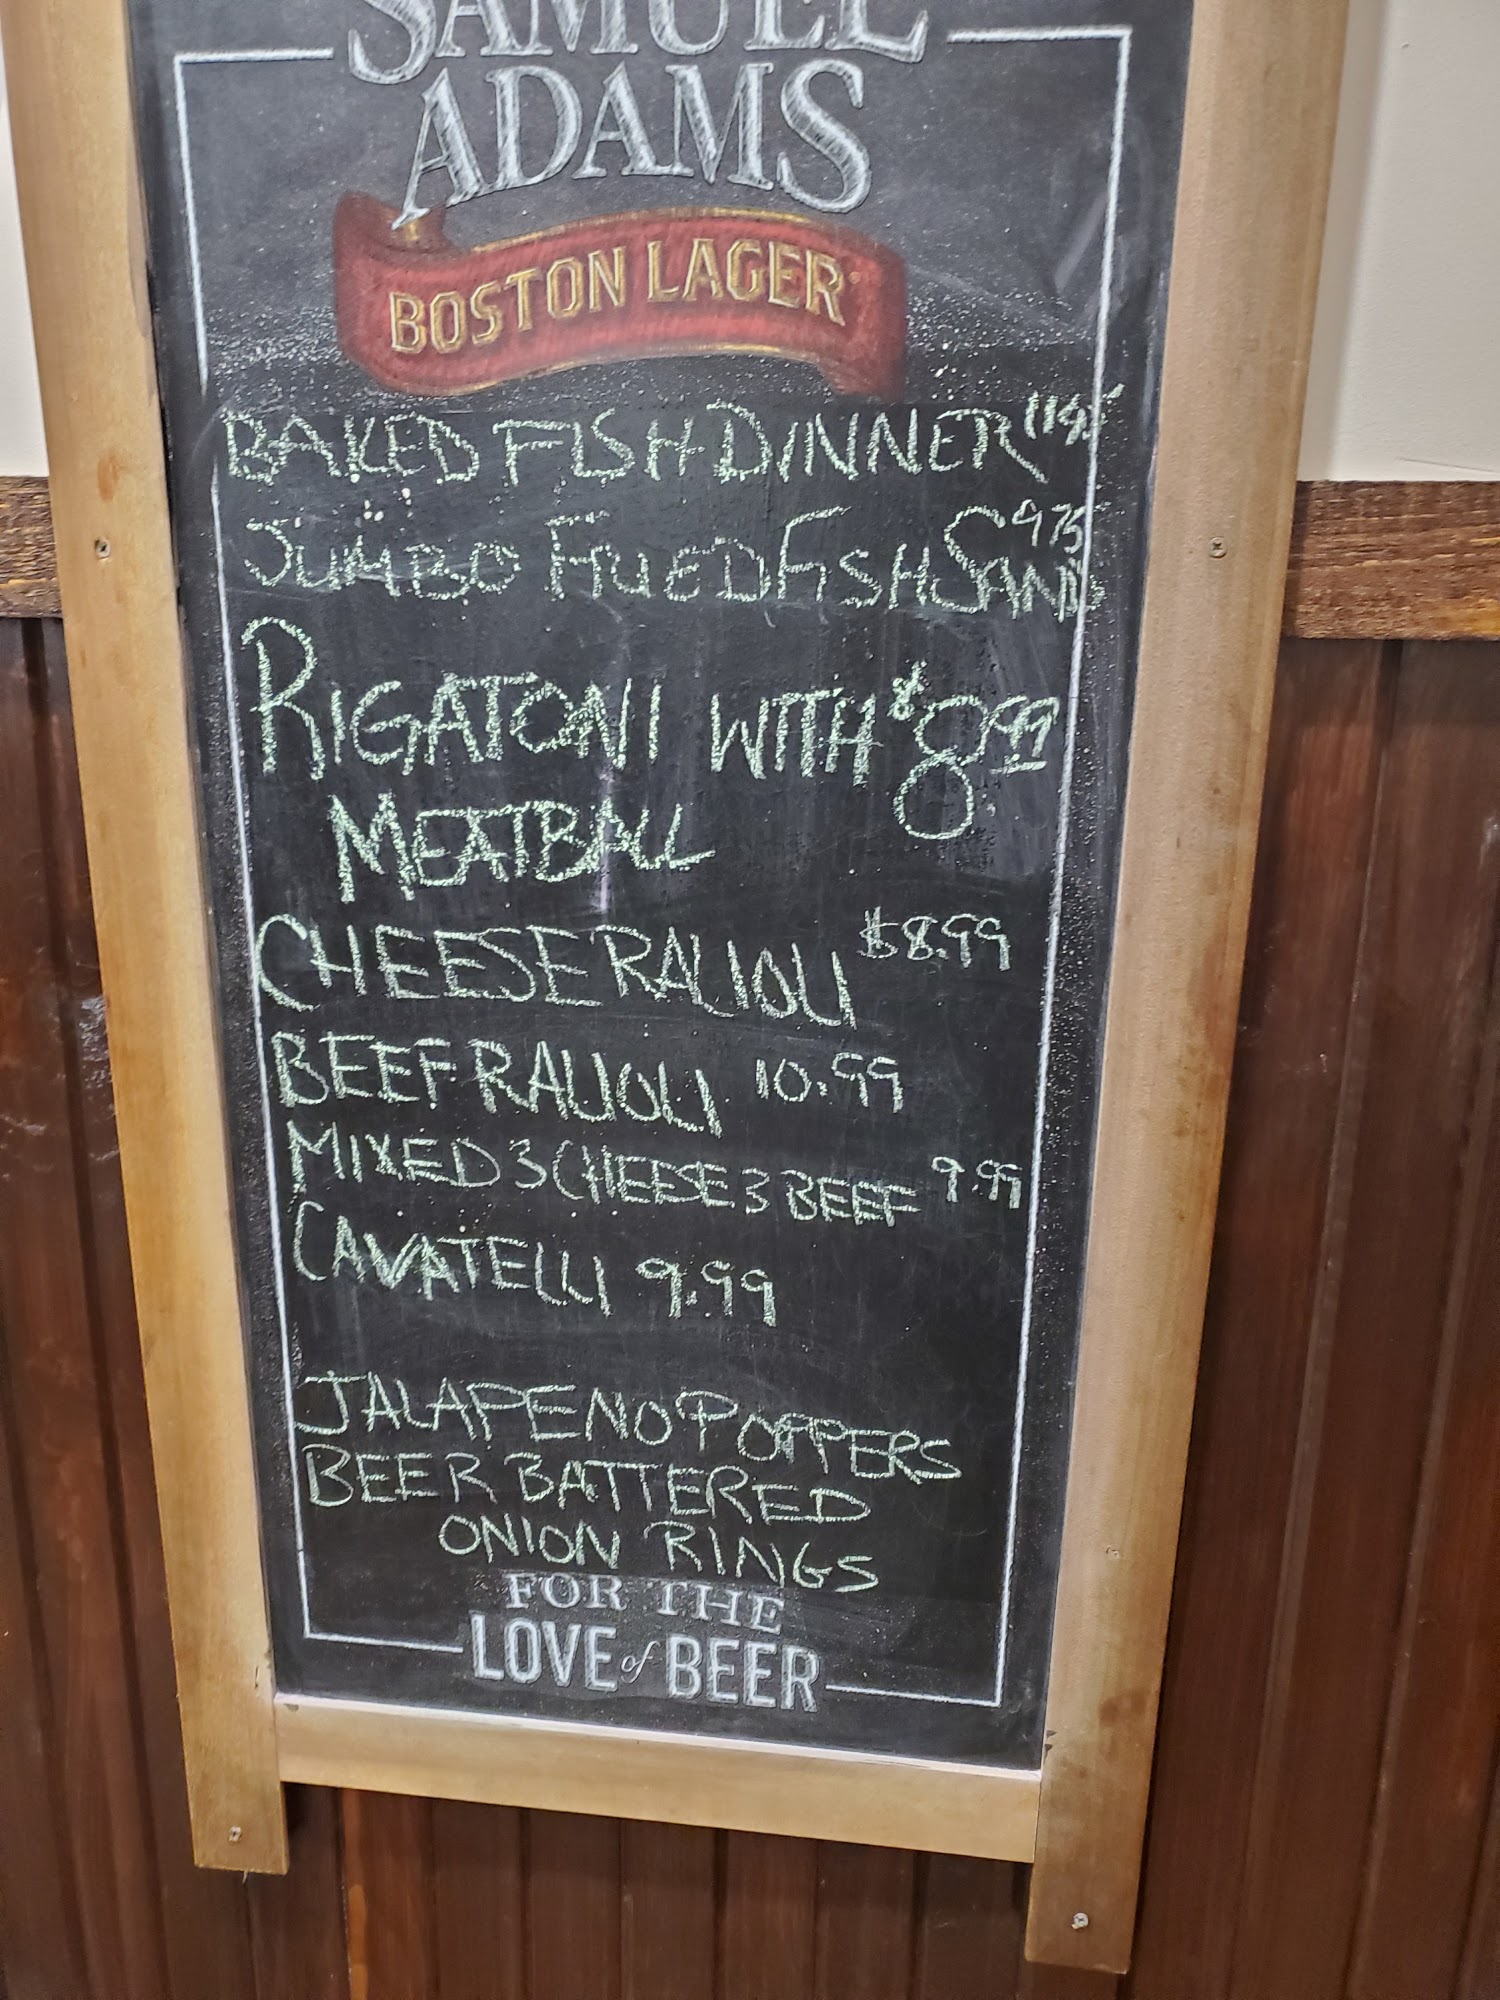 SAMUEL
ADAMS
BOSTON LAGER
BAKED FISH DINNER
JUMBO FRIED FISH SAND 9.75
RIGATONI WITH $8.99
MEATBALL
CHEESE RAVIOLI $8.99
BEEF RAVIOLI 10.99
MIXED 3 CHEESE 3 BEEF 9.99
CAVATELLI 9.99
JALAPENO POPPERS
BEER BATTERED
ONION RINGS
FOR THE
LOVE of BEER